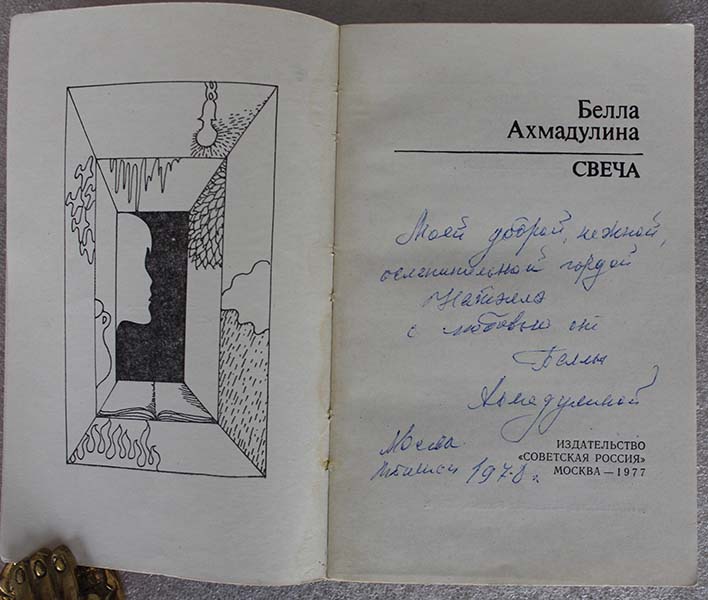 Белла
Ахмадулина
СВЕЧА
Моей доброй, нежной,
ослепительной гордой
Нателле
с любовью от
Беллы
Ахмадулиной
Москва
Тбилиси 1978 г.
ИЗДАТЕЛЬСТВО
«СОВЕТСКАЯ РОССИЯ»
МОСКВА — 1977